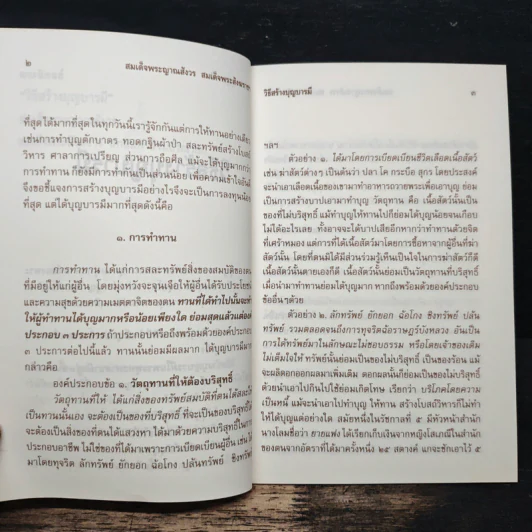 ๒
สมเด็จพระญาณสังวร สมเด็จพระสังฆราช
ที่สุดได้มากที่สุดในทุกวันนี้เรารู้จักกันแต่การให้ทานอย่างเดียว
เช่นการทำบุญตักบาตร ทอดกฐินผ้าป่า สละทรัพย์สร้างโบสถ์
วิหาร ศาลาการเปรียญ ส่วนการถือศีล แม้จะได้บุญมากกว่า
การทำทาน ก็ยังมีการทำกันเป็นส่วนน้อย เพื่อความเข้าใจอันดี
จึงขอชี้แจงการสร้างบุญบารมีอย่างไรจึงจะเป็นการลงทุนน้อย
ที่สุด แต่ได้บุญบารมีมากที่สุดดังนี้คือ
๑. การทำทาน
การทำทาน ได้แก่การสละทรัพย์สิ่งของสมบัติของตน
ที่มีอยู่ให้แก่ผู้อื่น โดยมุ่งหวังจะจุนเจือให้ผู้อื่นได้รับประโยชน์
และความสุขด้วยความเมตตาจิตของตน ทานที่ได้ทำไปนั้นจะทำ
ให้ผู้ทำทานได้บุญมากหรือน้อยเพียงใด ย่อมสุดแล้วแต่องค์
ประกอบ ๓ ประการ ถ้าประกอบหรือถึงพร้อมด้วยองค์ประกอบ
๓ ประการต่อไปนี้แล้ว ทานนั้นย่อมมีผลมาก ได้บุญบารมีมาก
กล่าวคือ
องค์ประกอบข้อ ๑. วัตถุทานที่ให้ต้องบริสุทธิ์
วัตถุทานที่ให้ ได้แก่สิ่งของทรัพย์สมบัติที่ตนได้สละ
เป็นทานนั้นเอง จะต้องเป็นของที่บริสุทธิ์ ที่จะเป็นของบริสุทธิ์
จะต้องเป็นสิ่งของที่ตนได้แสวงหา ได้มาด้วยความบริสุทธิ์ในการ
ประกอบอาชีพ ไม่ใช่ของที่ได้มาเพราะการเบียดเบียนผู้อื่น เช่น ได้
มาโดยทุจริต ลักทรัพย์ ยักยอก ฉ้อโกง ปล้นทรัพย์ ชิงทรัพย์
วิธีสร้างบุญบารมี
๓
ฯลฯ
ตัวอย่าง ๑. ได้มาโดยการเบียดเบียนชีวิตเลือดเนื้อสัตว์
เช่น ฆ่าสัตว์ต่างๆ เป็นต้นว่า ปลา โค กระบือ สุกร โดยประสงค์
จะนำเอาเลือดเนื้อของเขามาทำอาหารถวายพระเพื่อเอาบุญ ย่อม
เป็นการสร้างบาปเอามาทำบุญ วัตถุทาน คือ เนื้อสัตว์นั้นเป็น
ของที่ไม่บริสุทธิ์ แม้ทำบุญให้ทานไปก็ย่อมได้บุญน้อยจนเกือบ
ไม่ได้อะไรเลย ทั้งอาจจะได้บาปเสียอีกหากว่าทำทานด้วยจิต
ที่เศร้าหมอง แต่การที่ได้เนื้อสัตว์มาโดยการซื้อหาจากผู้อื่นที่ฆ่า
สัตว์นั้น โดยที่ตนมิได้มีส่วนร่วมรู้เห็นเป็นใจในการฆ่าสัตว์ก็ดี
เนื้อสัตว์นั้นตายเองก็ดี เนื้อสัตว์นั้นย่อมเป็นวัตถุทานที่บริสุทธิ์
เมื่อนำมาทำทานย่อมได้บุญมาก หากถึงพร้อมด้วยองค์ประกอบ
ข้ออื่นๆด้วย
ตัวอย่าง ๒. ลักทรัพย์ ยักยอก ฉ้อโกง ชิงทรัพย์ ปล้น
ทรัพย์ รวมตลอดจนถึงการทุจริตฉ้อราษฎร์บังหลวง อันเป็น
การได้ทรัพย์มาในลักษณะไม่ชอบธรรม หรือโดยเจ้าของเดิม
ไม่เต็มใจให้ ทรัพย์นั้นย่อมเป็นของไม่บริสุทธิ์ เป็นของร้อน แม้
จะผลิดอกออกผลมาเพิ่มเติม ดอกผลนั้นก็ย่อมเป็นของไม่บริสุทธิ์
ด้วยนำเอาไปกินไปใช้ย่อมเกิดโทษ เรียกว่า บริโภคโดยความ
เป็นหนี้ แม้จะนำเอาไปทำบุญ ให้ทาน สร้างโบสถ์วิหารก็ไม่ทำ
ให้ได้บุญแต่อย่างใด สมัยหนึ่งในรัชกาลที่ ๕ มีหัวหน้าสำนัก
นางโลมชื่อว่า ยายแฟง ได้เรียกเก็บเงินจากหญิงโสเภณีในสำนัก
ของตนจากอัตราที่ได้มาครั้งหนึ่ง ๒๕ สตางค์ แกจะชักเอาไว้ ๕